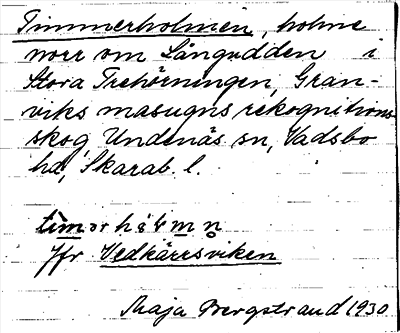 Timmerholmen, holme
norr om Långudden i
Stora Trehörningen, Gran-
viks masugns rekognitions-
skog, Undenäs sn, Vadsbo
hd, Skarab. l.
Jfr Vedkäresviken
Maja Bergstrand 1930